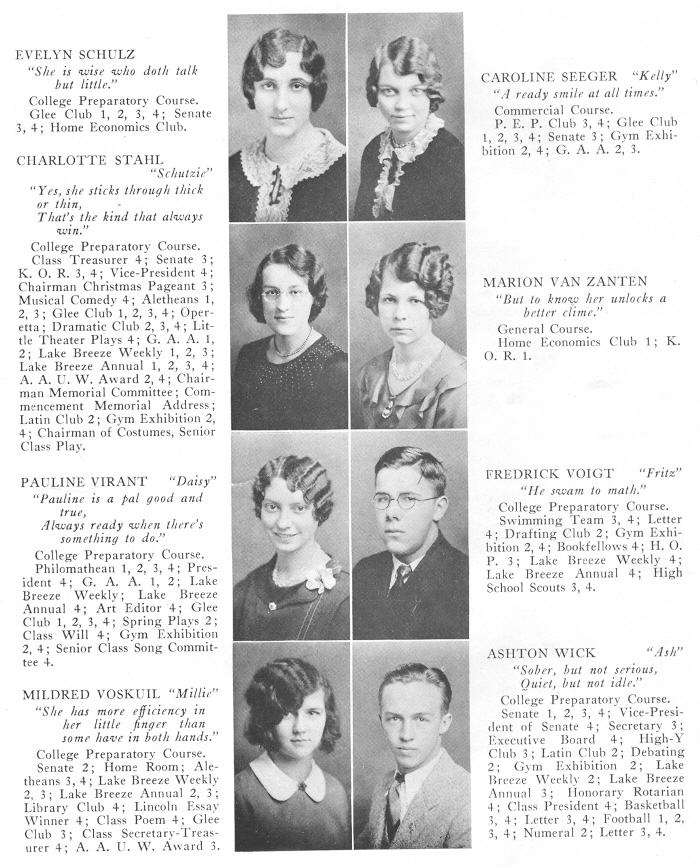 EVELYN SCHULZ
"She is wise who doth talk
but little."
College Preparatory Course.
Glee Club 1, 2, 3, 4; Senate
3, 4; Home Economics Club.
CHARLOTTE STAHL
"Schutzie"
"Yes, she sticks through thick
or thin,
That's the kind that always
win."
College Preparatory Course.
Class Treasurer 4; Senate 3;
K. O. R. 3, 4; Vice-President 4;
Chairman Christmas Pageant 3;
Musical Comedy 4; Aletheans 1,
2, 3; Glee Club 1, 2, 3, 4; Oper-
etta; Dramatic Club 2, 3, 4; Lit-
tle Theater Plays 4; G. A. A. 1,
2; Lake Breeze Weekly 1, 2, 3;
Lake Breeze Annual 1, 2, 3, 4;
A. A. U. W. Award 2, 4; Chair-
man Memorial Committee; Com-
mencement Memorial Address;
Latin Club 2; Gym Exhibition 2,
4; Chairman of Costumes, Senior
Class Play.
PAULINE VIRANT "Daisy"
"Pauline is a pal good and
true,
Always ready when there's
something to do."
College Preparatory Course.
Philomathean 1, 2, 3, 4; Pres-
ident 4; G. A. A. 1, 2; Lake
Breeze Weekly; Lake Breeze
Annual 4; Art Editor 4; Glee
Club 1, 2, 3, 4; Spring Plays 2;
Class Will 4; Gym Exhibition
2, 4; Senior Class Song Commit-
tee 4.
MILDRED VOSKUIL "Millie"
"She has more efficiency in
her little finger than
some have in both hands."
College Preparatory Course.
Senate 2; Home Room; Ale-
theans 3, 4; Lake Breeze Weekly
2, 3; Lake Breeze Annual 2, 3;
Library Club 4; Lincoln Essay
Winner 4; Class Poem 4; Glee
Club 3; Class Secretary-Treas-
urer 4; A. A. U. W. Award 3.
CAROLINE SEEGER "Kelly"
"A ready smile at all times."
Commercial Course.
P. E. P. Club 3, 4; Glee Club
1, 2, 3, 4; Senate 3; Gym Exhi-
bition 2, 4; G. A. A. 2, 3.
MARION VAN ZANTEN
"But to know her unlocks a
better clime."
General Course.
Home Economics Club 1; K.
O. R. 1.
FREDRICK VOIGT "Fritz"
"He swam to math."
College Preparatory Course.
Swimming Team 3, 4; Letter
4; Drafting Club 2; Gym Exhi-
bition 2, 4; Bookfellows 4; H. O.
P. 3; Lake Breeze Weekly 4;
Lake Breeze Annual 4; High
School Scouts 3, 4.
ASHTON WICK "Ash"
"Sober, but not serious,
Quiet, but not idle."
College Preparatory Course.
Senate 1, 2, 3, 4; Vice-Presi-
dent of Senate 4; Secretary 3;
Executive Board 4; High-Y
Club 3; Latin Club 2; Debating
2; Gym Exhibition 2; Lake
Breeze Weekly 2; Lake Breeze
Annual 3; Honorary Rotarian
4; Class President 4; Basketball
3, 4; Letter 3, 4; Football 1, 2,
3, 4; Numeral 2; Letter 3, 4.